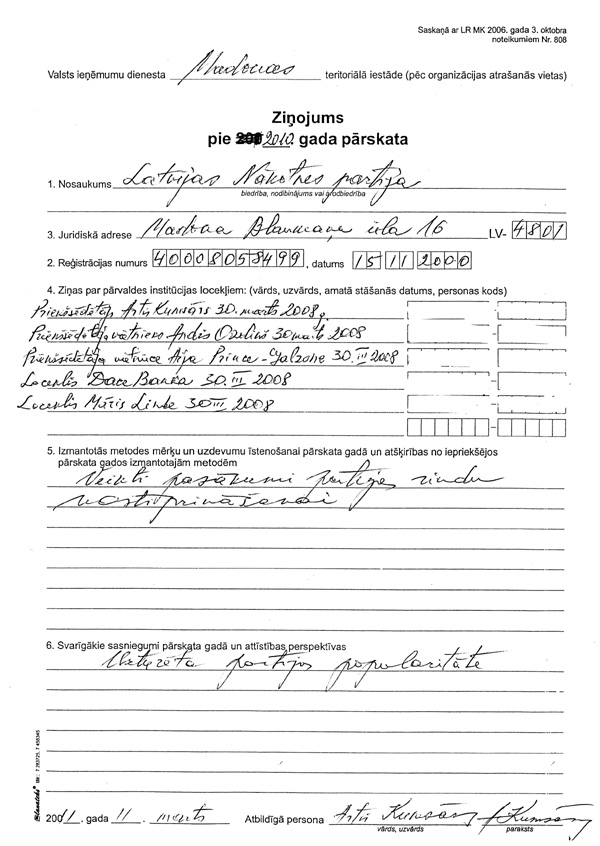 Saskaņā ar LR MK 2006. gada 3. oktobra
noteikumiem Nr. 808
Valsts ieņēmumu dienesta Madonas teritoriālā iestāde (pēc organizācijas atrašanās vietas)
Ziņojums
pie 2010. gada pārskata
1. Nosaukums Latvijas Nākotnes partija
biedrība, nodibinājums vai arodbiedrība
3. Juridiskā adrese Madona Blaumaņa iela 16 LV- 4801
2. Reģistrācijas numurs 40008058499, datums 15 11 2000
4. Ziņas par pārvaldes institūcijas locekļiem: (vārds, uzvārds, amatā stāšanās datums, personas kods)
Priekšsēdētājs Artis Kumsārs 30. marts 2008.
Priekšsēdētāja vietnieks Andis Ozoliņš 30 marts 2008
Priekšsēdētāja vietniece Aija Prince - 30. III 2008
Loceklis Dace Banka 30. III 2008
Loceklis Māris Linde 30 III 2008
5. Izmantotās metodes mērķu un uzdevumu īstenošanai pārskata gadā un atšķirības no iepriekšējos
pārskata gados izmantotajām metodēm
Veikti pasākumi partijas rindu
nostiprināšanai
6. Svarīgākie sasniegumi pārskata gadā un attīstības perspektīvas
partijas popularitāte
Blankeds tālr.: 7 283725, 7 458345
20011. gada 11. marts Atbildīgā persona Artis Kumsārs Kumsārs
vārds, uzvārds paraksts